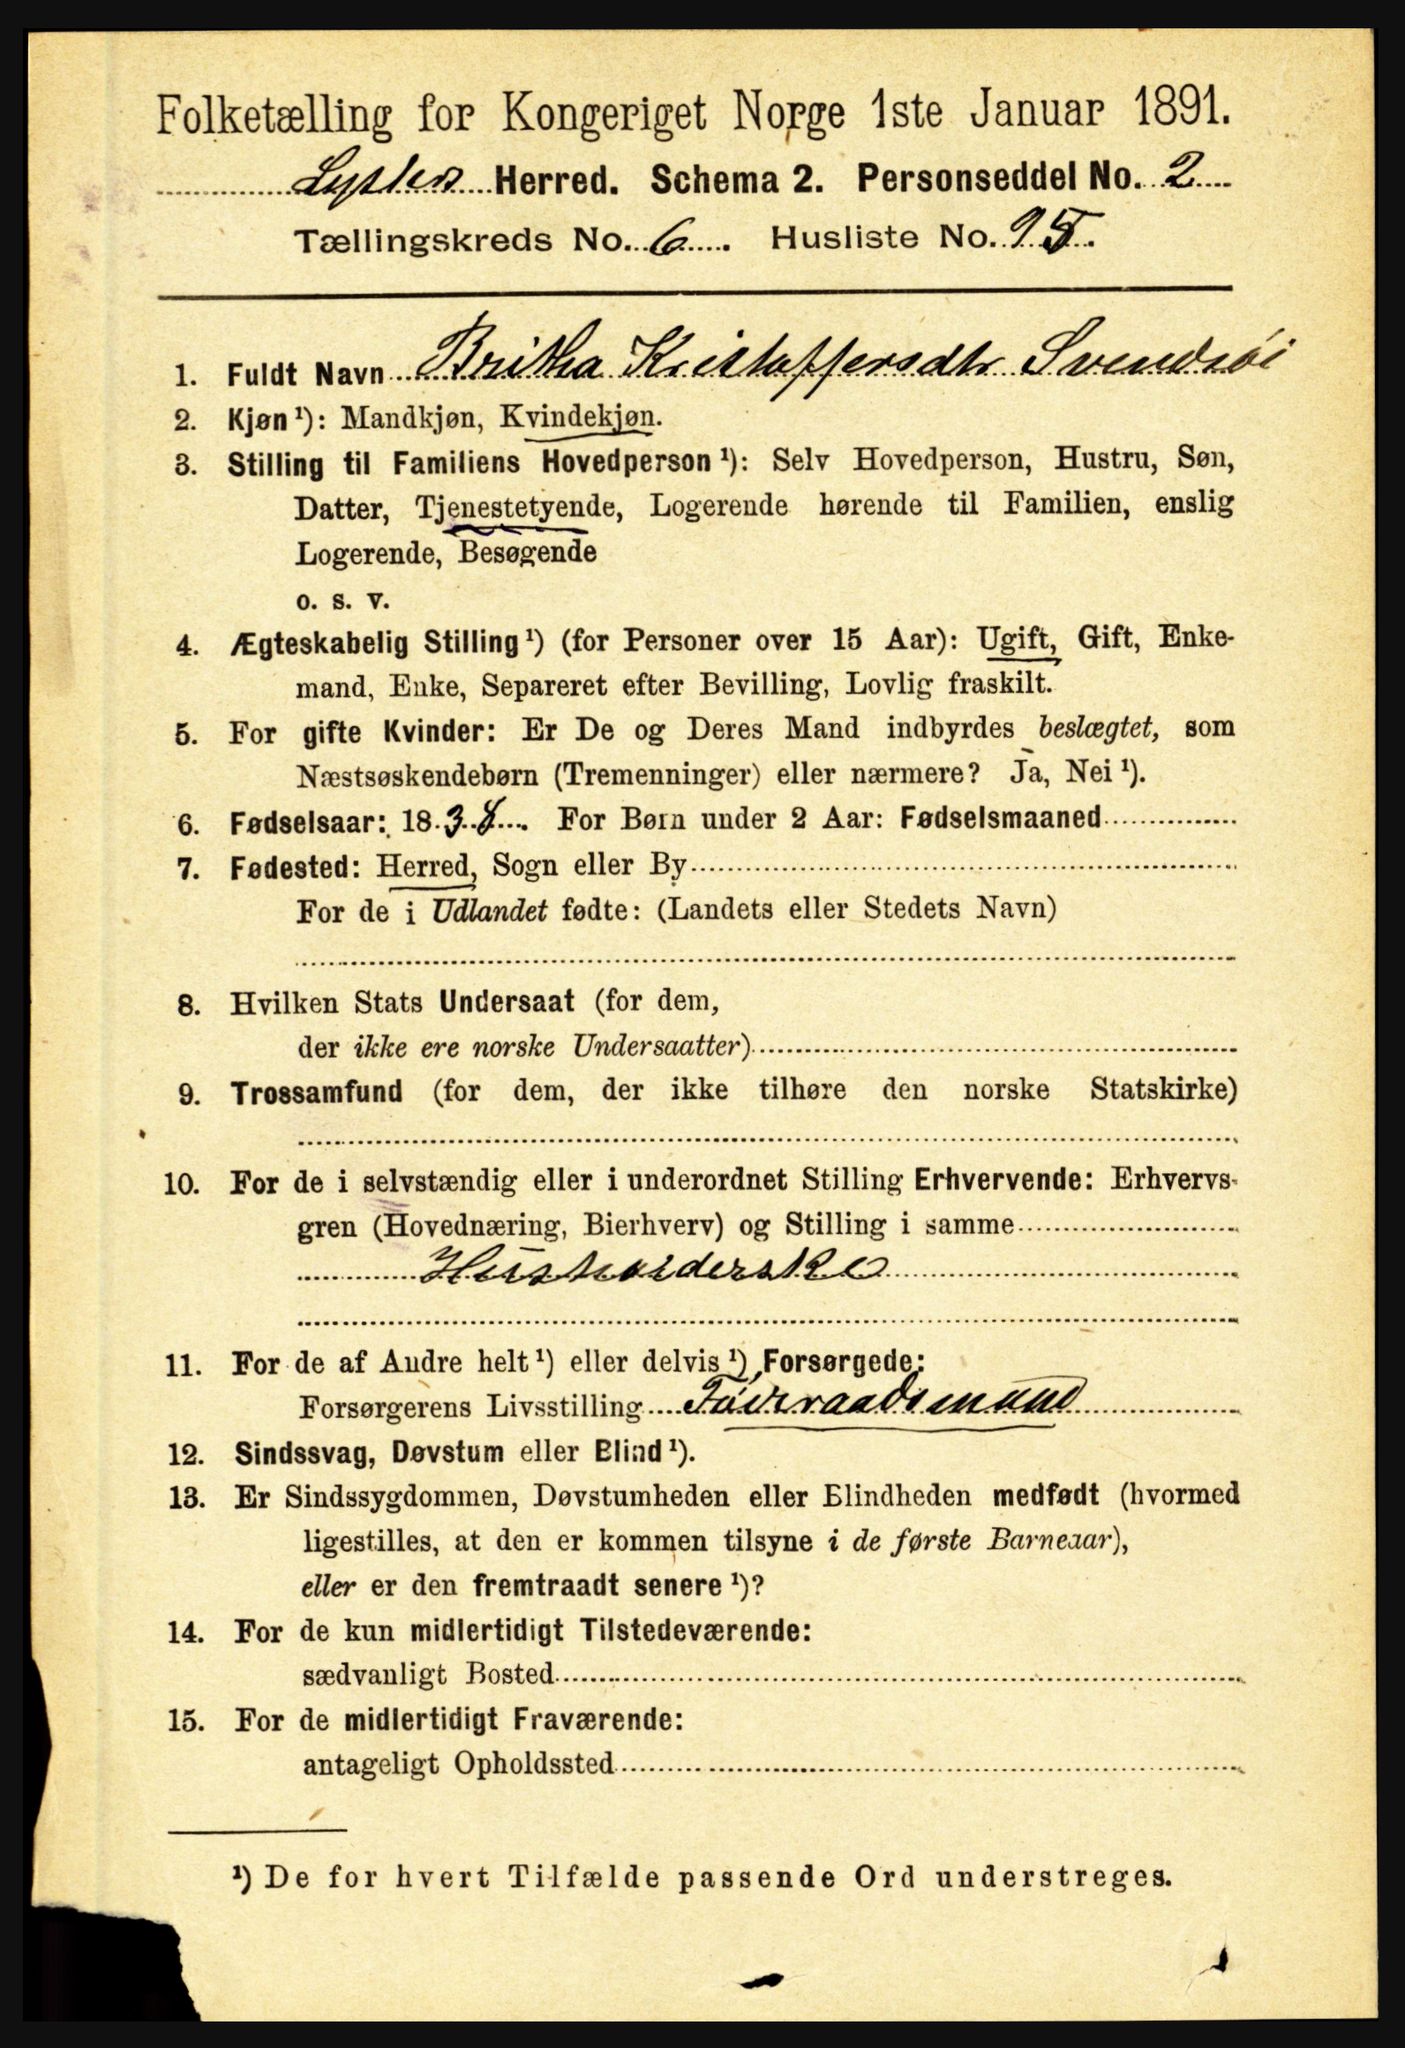 Folketælling for Kongeriget Norge 1ste Januar 1891.
Lyster Herred. Schema 2. Personseddel No. 2
Tællingskreds No. 6. Husliste No. 95.
1. Fuldt Navn Britha Kristoffersdtr Svendsøi
2. Kjøn ¹): Mandkjøn, Kvindekjøn.
3. Stilling til Familiens Hovedperson ¹): Selv Hovedperson, Hustru, Søn,
Datter, Tjenestetyende, Logerende hørende til Familien, enslig
Logerende, Besøgende
o. s. v.
4. Ægteskabelig Stilling ¹) (for Personer over 15 Aar): Ugift, Gift, Enke-
mand, Enke, Separeret efter Bevilling, Lovlig fraskilt.
5. For gifte Kvinder: Er De og Deres Mand indbyrdes beslægtet, som
Næstsøskendebørn (Tremenninger) eller nærmere? Ja, Nei ¹).
6. Fødselsaar: 1838. For Børn under 2 Aar: Fødselsmaaned
7. Fødested: Herred, Sogn eller By
For de i Udlandet fødte: (Landets eller Stedets Navn)
8. Hvilken Stats Undersaat (for dem,
der ikke ere norske Undersaatter)
9. Trossamfund (for dem, der ikke tilhøre den norske Statskirke)
10. For de i selvstændig eller i underordnet Stilling Erhvervende: Erhvervs-
gren (Hovednæring, Bierhverv) og Stilling i samme
Husholderske
11. For de af Andre helt ¹) eller delvis ¹) Forsørgede:
Forsørgerens Livsstilling Føderaadsmand
12. Sindssvag, Døvstum eller Blind ¹).
13. Er Sindssygdommen, Døvstumheden eller Blindheden medfødt (hvormed
ligestilles, at den er kommen tilsyne i de første Barneaar),
eller er den fremtraadt senere ¹)?
14. For de kun midlertidigt Tilstedeværende:
sædvanligt Bosted
15. For de midlertidigt Fraværende:
antageligt Opholdssted
¹) De for hvert Tilfælde passende Ord understreges.